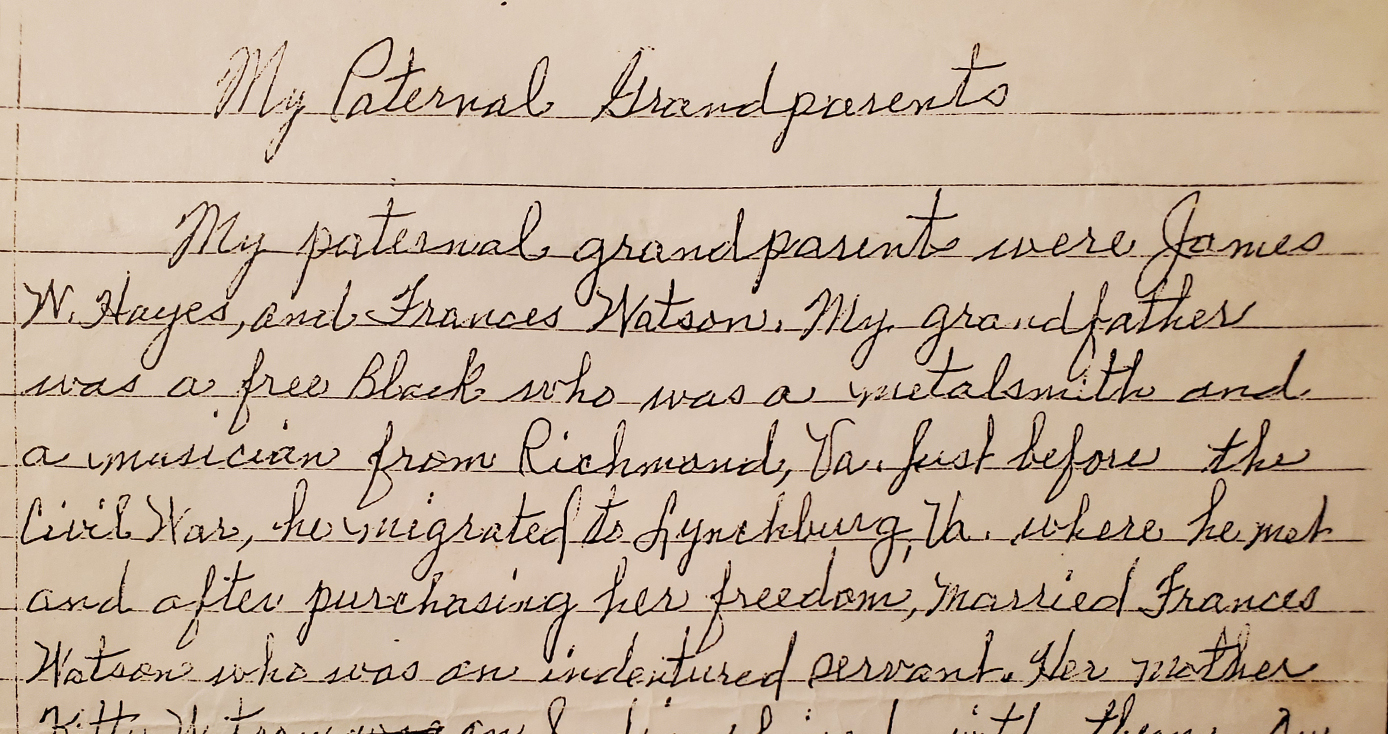 My Paternal Grandparents
My paternal grandparents were James
W. Hayes, and Frances Watson. My grandfather
was a free Black who was a metalsmith and
a musician from Richmond, Va. Just before the
Civil War, he migrated to Lynchburg, Va. where he met
and after purchasing her freedom, married Frances
Watson who was an indentured servant. Her mother
Kitty with them.